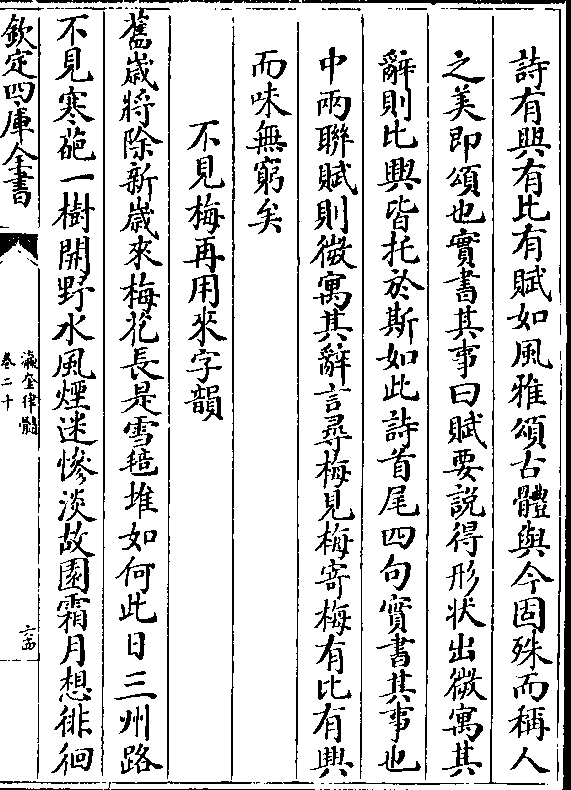 詩有興有比有賦如風雅頌古體與今固殊而稱人
之美即頌也實書其事曰賦要說得形狀出微寓其
辭則比興皆托於斯如此詩首尾四句實書其事也
中兩聯賦則微寓其辭言尋梅見梅寄梅有比有興
而味無窮矣
不見梅再用來字韻
舊歲將除新歲來梅花長是雪毰堆如何此日三州路
不見寒葩一樹開野水風煙迷慘淡故園霜月想徘徊
欽定四庫全書
瀛奎律髓
卷二十